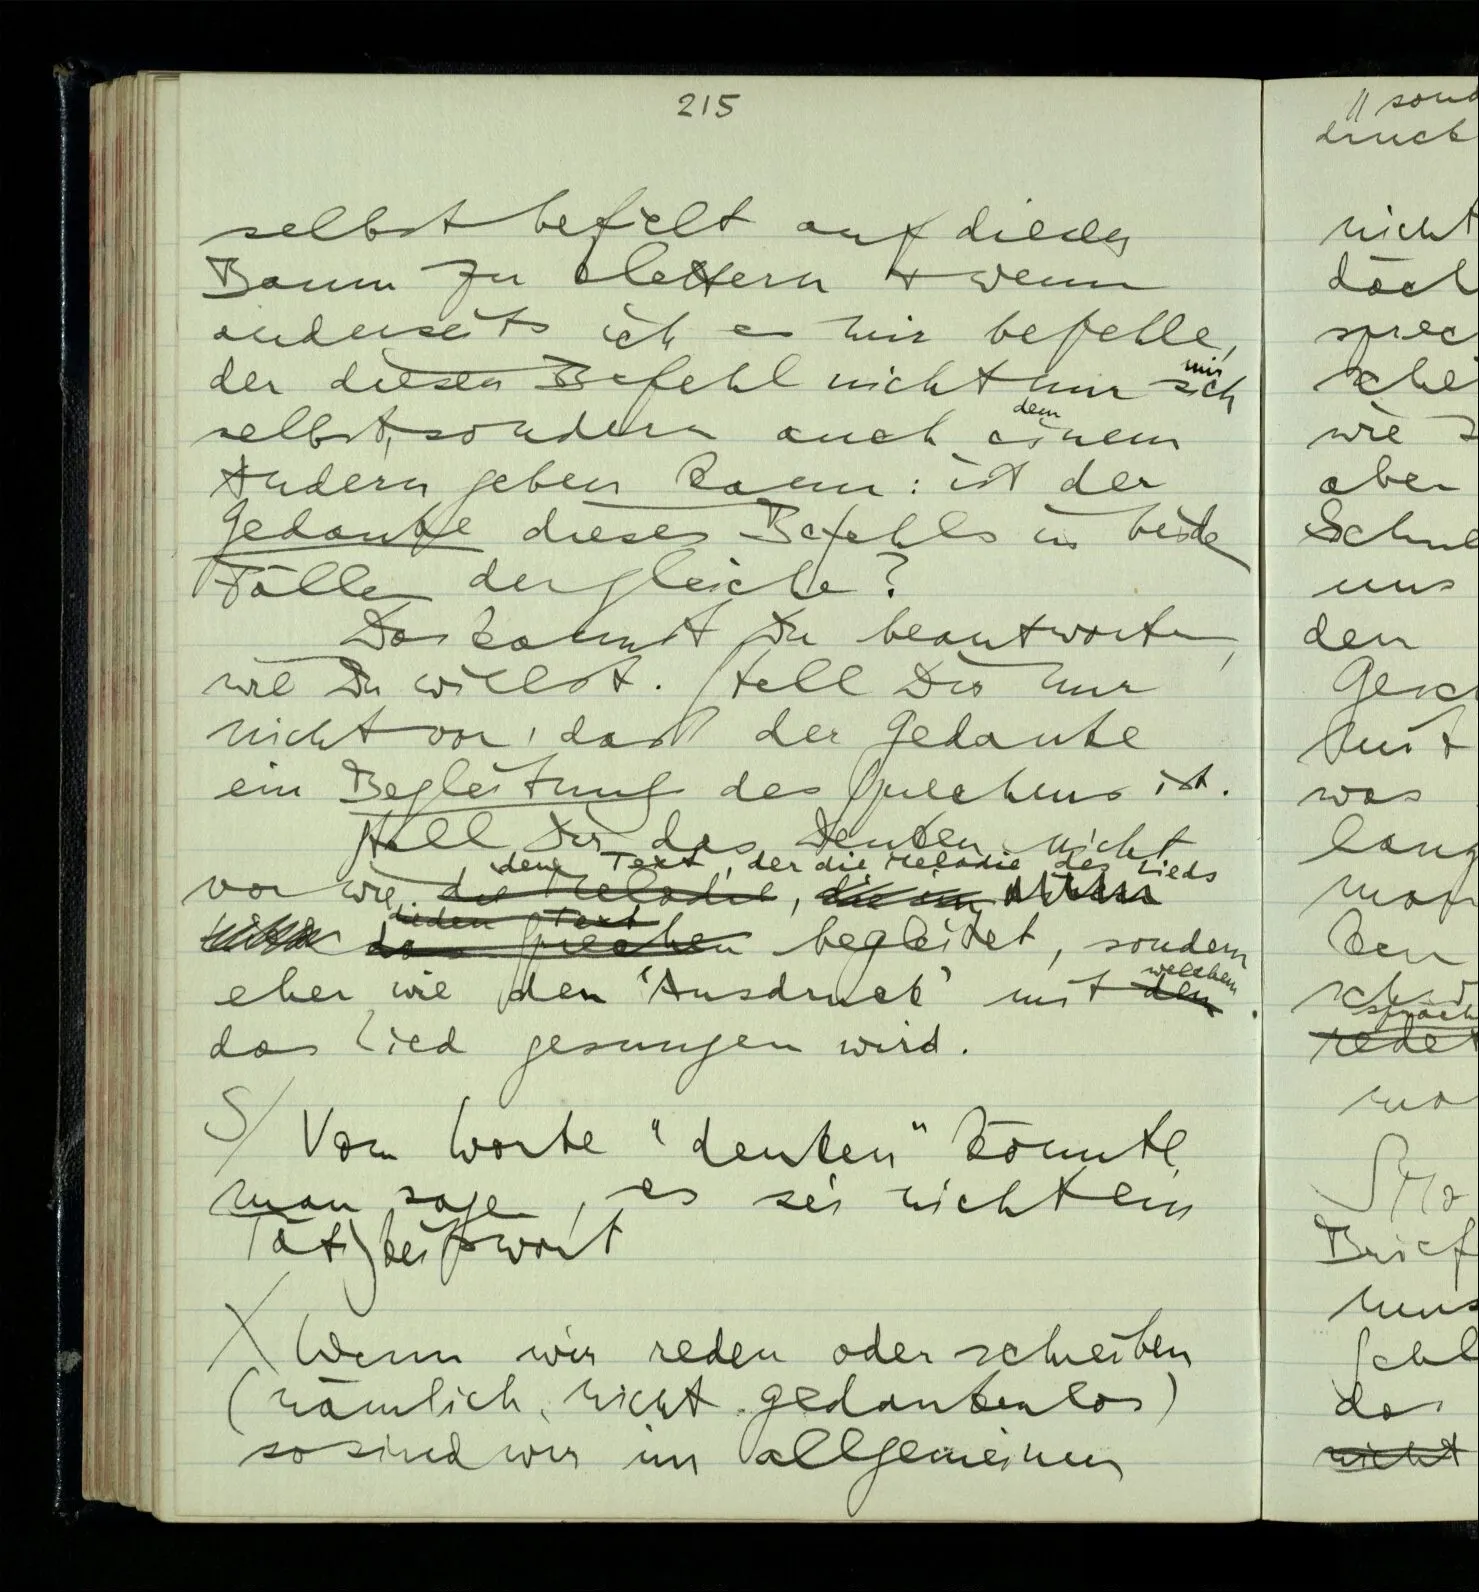 215
selbst befielt auf diesen
Baum zu klettern & wenn
anderseits ich es mir befehle,
der diesen Befehl nicht nur sich
mir
selbst, sondern auch einem
dem
Andern geben kann: ist der
Gedanke dieses Befehls in beide
Fälle der gleiche?
Das kannst Du beantworten,
wie Du willst. Stell Dir nur
nicht vor, daß der Gedanke
ein Begleitung des Sprechens ist.
Stell Dir das Denken nicht
dem Text, der die Melodie des Lieds
vor wie die Melodie,
den Text
das Sprechen begleitet, sondern
eher wie den 'Ausdruck' mit dem
welchem
das Lied gesungen wird.
S/ Vom Worte "denken" könnte
man sagen, es sei nicht ein
Tätigkeitswort
X Wenn wir reden oder schreiben
(nämlich nicht gedankenlos)
so sind wir im allgemeinen
// sond
druck
nicht
doch
sprec
sche
wie
aber
Schul
uns
den
Gesc
was
lang
man
ken
spräch
redet
ma
Brief
uns
das
nicht